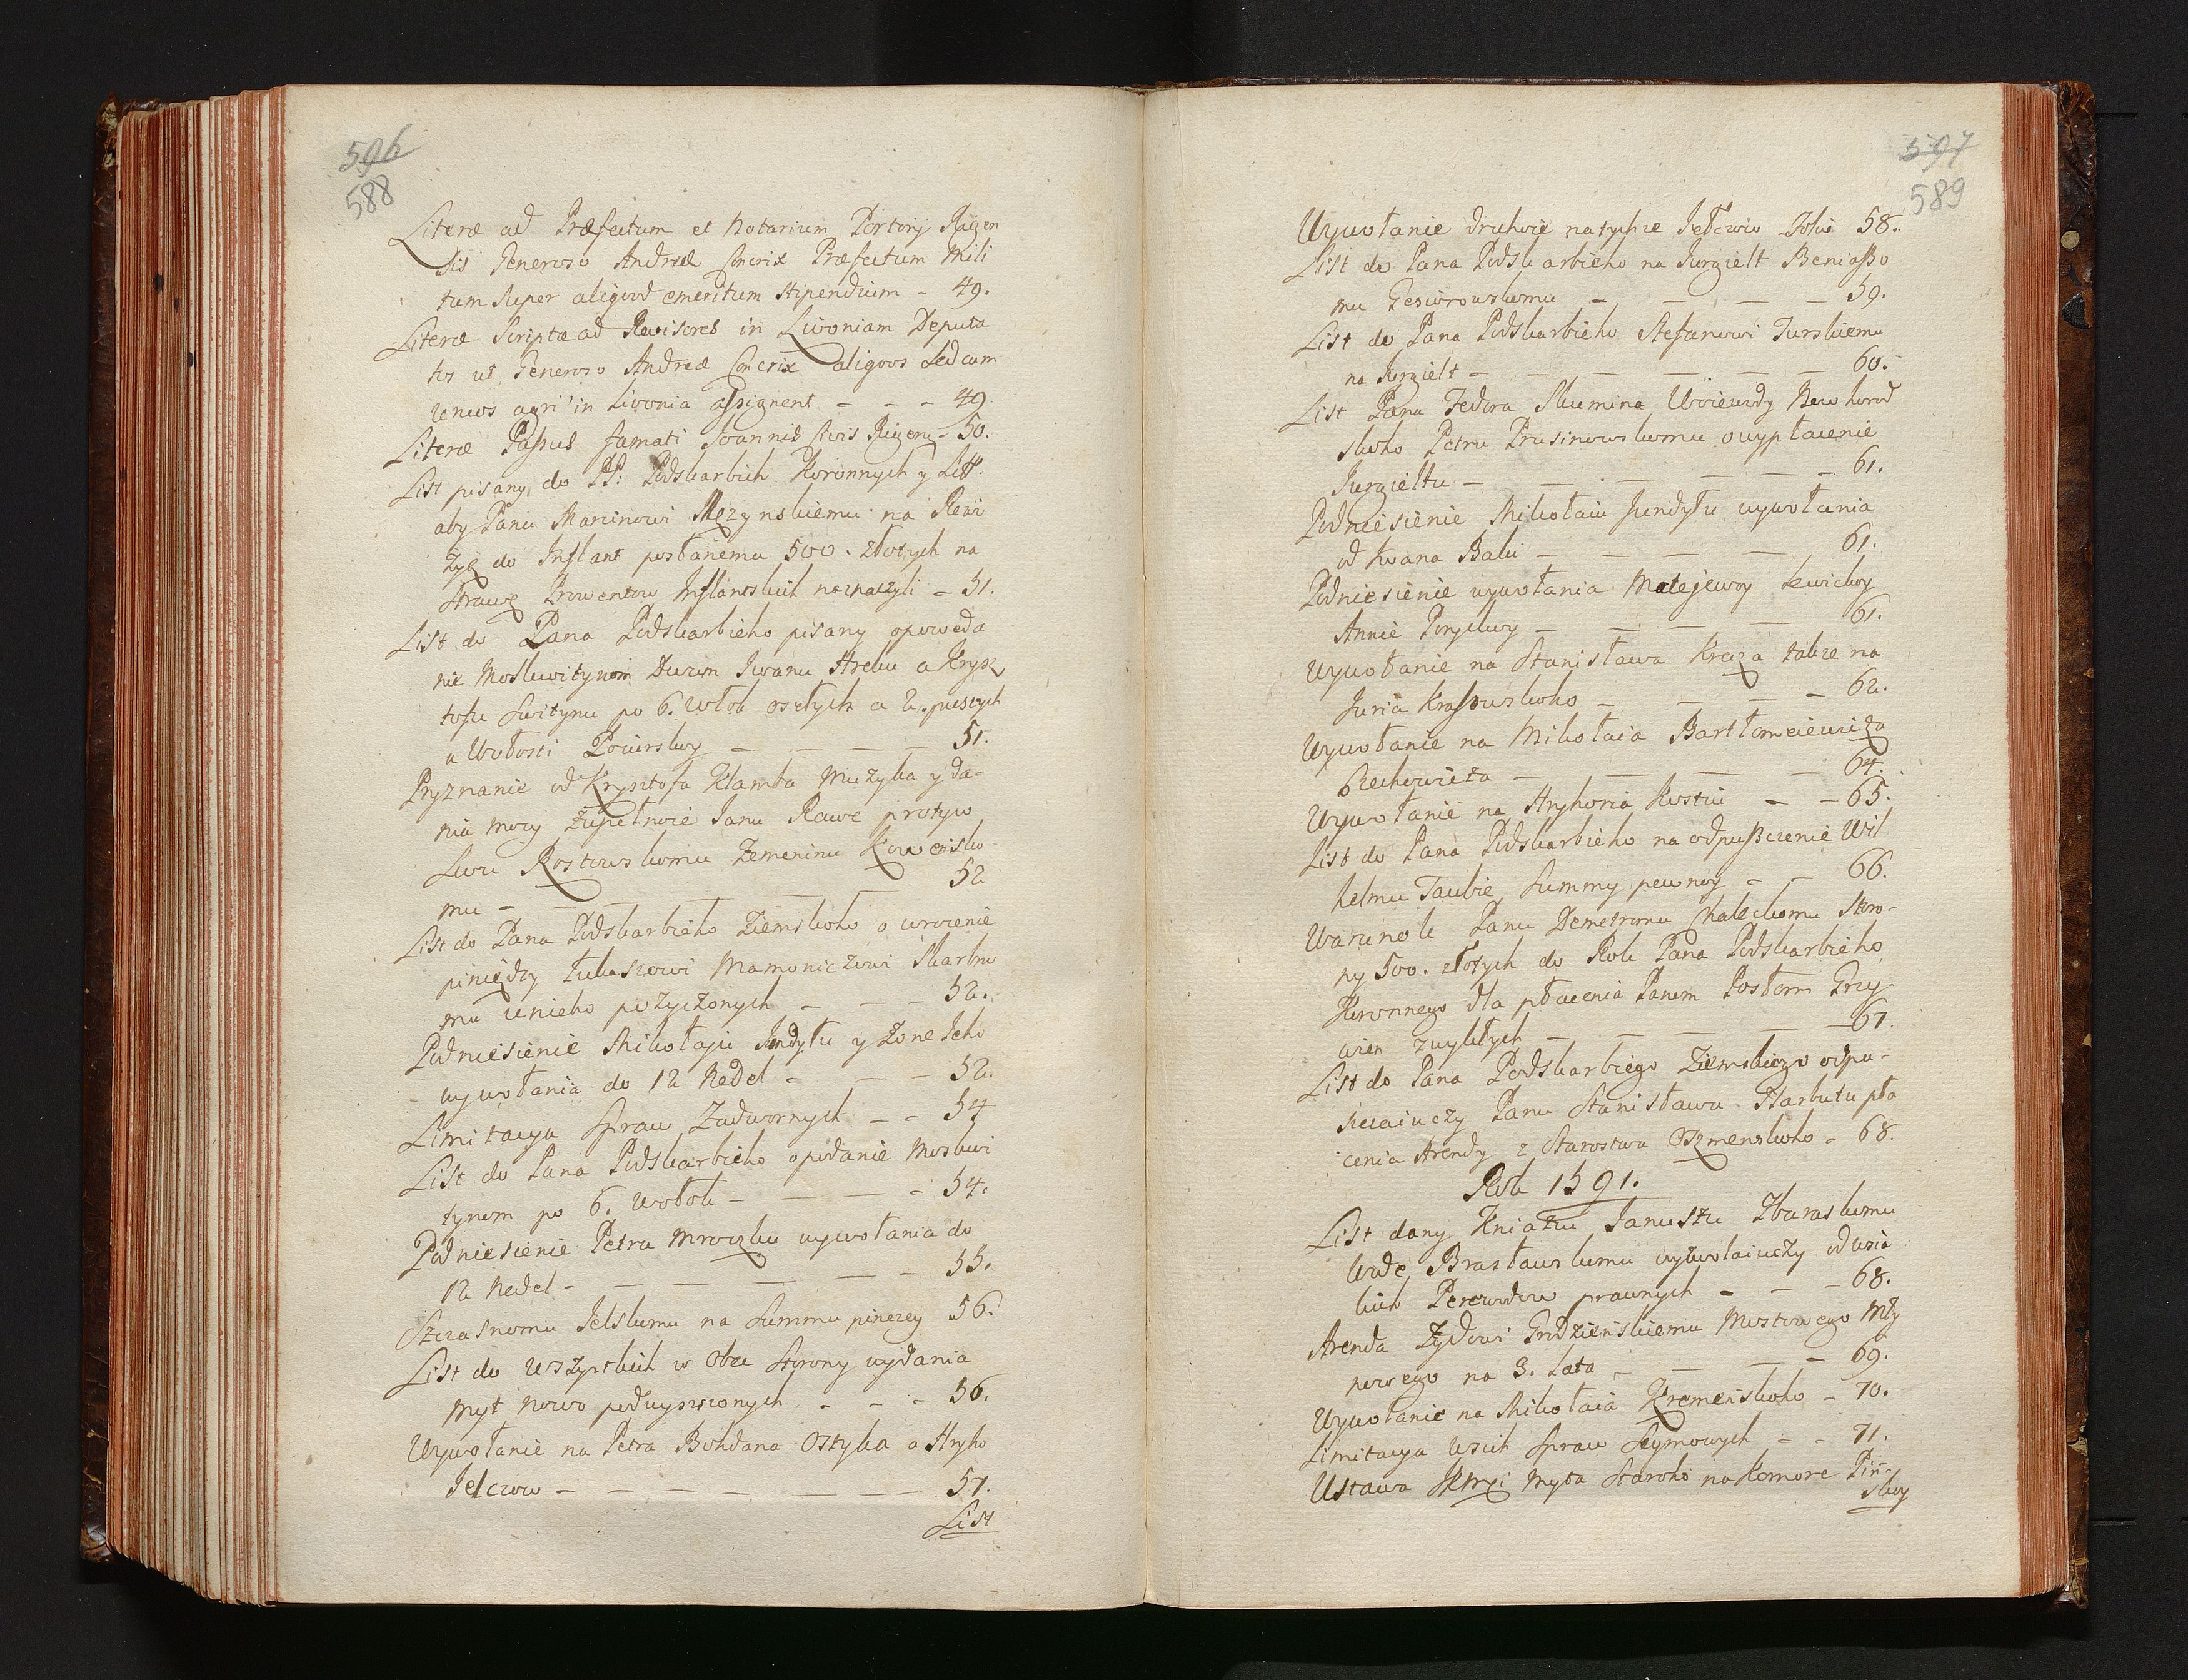 596
588
Literæ ad Præfectum et Notarium Portorij Rigen
sis Generoso Andreæ Præfectum Mili
tum super aliquod emeritum stipendium - 49.
Literæ Scriptæ ad Revisores in Livoniam Deputa
tos ut Generoso Andreæ aliquos sed cum
uncos agri in Livonia assignent - - - 49
Literæ Passus famati Joannis Civis Rigen - 50.
List pisany do PP: Podskarbich Koronnych y Litt.
aby Panu Marcinowi Męzynskiemu na Rewi
zyę do Inflant posłanemu 500. złotych na
strawę Prowentow Inflantskich naznaczyli - 51.
List do Pana Podskarbieho pisany o poweda
nie Moskwitynom Durym Iwanu Hreku a Krysz
tofu Switynu po 6. włok osełych a 2. pustych
u Wołosti Pounskoy - - - - 51.
Pryznanie od Krysztofa Klamta Muzyka y da-
nia mocy zupełnoie Janu Rawe protyw
Lwu Rostowskomu Zemeninu Kowensko
mu - - - - 52
List do Pana Podskarbieho Ziemskoho o wrocenie
pinięzy Łukaszowi Mamoniczowi Skarbno
mu u nieho pożyczonych - - - 52.
Podniesienie Mikołaju Jundyłu y żone Jeho
wywołania do 12 Nedel - - - 52.
Limitacya Spraw Zadwornych - - 54
List do Pana Podskarbieho o podanie Moskwi
tynom po 6. włok - - - - 54.
Podniesienie Petru Mroczku wywołania do
12 Nedel - - - - - - 55.
Szczasnomu Jelskumu na summu pinezey 56.
List do wszystkich w obec strony wydania
myt nowo podwyszszonych - - - 56.
Wywołanie na Petra Bohdana Ostyka a Hryho
Jelczow - - - - - - - 57.
List
597
589
Wywołanie druhoie na tychze Jełcow 58.
List do Pana Podskarbieho na Jurgielt Beniaszo
mu - - - - 59.
List do Pana Podskarbieho Stefanowi Turskiemu
na Jurgielt - - - - - - 60.
List Pana Fedora Skumina Woiewody Nowhorod
skoho Petru Prusinowskomu o wypłacenie
Jurgieltu - - - - - - 61.
Podniesienie Mikołaiu Jundyłu wywołania
od Iwana Baki - - - - 61.
Podniesienie wywołania Matejewoy Lewickoy
Annie - - - - 61.
Wywołanie na Stanisława Kreza także na
Juria Krassowskoho - - - - 62.
Wywołanie na Mikołaia Bartłomeiewicza
Rechowicza - - - - 64.
Wywołanie na Hryhoria Kostiu - - 65.
List do Pana Podskarbieho na odpuszczenie Wil
helmu Taubie summy pewnoy - - 66.
Warunok Panu Demetromu Chaleckomu Stro-
ny 500. złotych do Rok Pana Podskarbieho
Koronnego dla płacenia Panom Posłom Grzy
wien zwykłych - - - - - 67.
List do Pana Podskarbiego Ziemskiego odpu-
szczaiuczy Panu Stanisławu Narbutu pła
cenia Arendy z Starostwa Oszmenskoho - 68.
Rok 1591.
List dany Kniaziu Januszu Zbaraskumu
Wwde Brasławskumu wyzwolaiuczy od wsia
kich Perewodow prawnych - - - 68.
Arenda Żydowi Grodzieńskiemu Mostowego Mły
nowego na 3. Lata - - - - 69.
Wywołanie na Mikołaia Kremeńskoho - 70.
Limitacya Wsich Spraw Seymowych - - 71.
Ustawa JKMci Myta Staroho na Komore Piń-
skoy